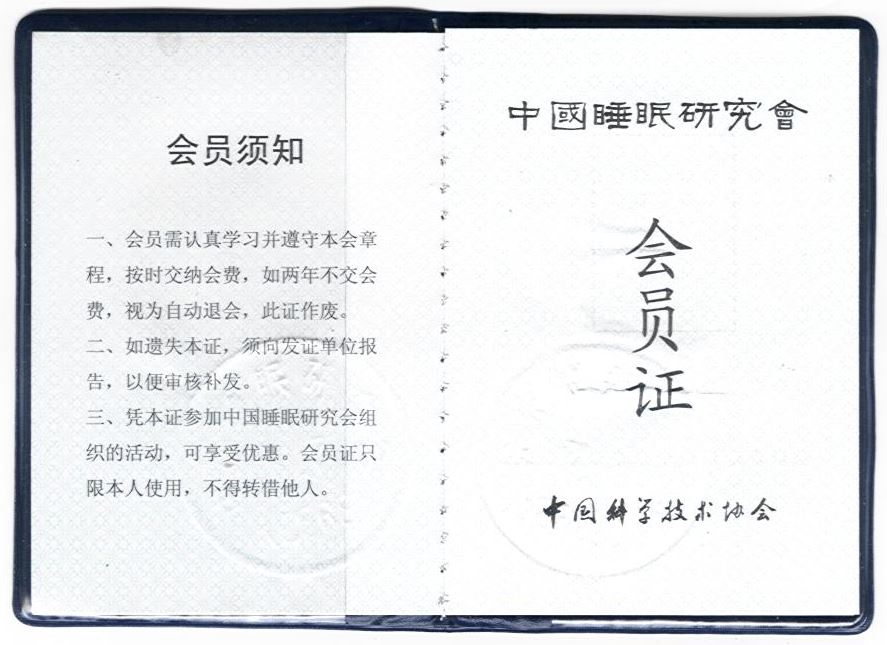 会员须知
一、会员需认真学习并遵守本会章
程，按时交纳会费，如两年不交会
费，视为自动退会，此证作废。
二、如遗失本证，须向发证单位报
告，以便审核补发。
三、凭本证参加中国睡眠研究会组
织的活动，可享受优惠。会员证只
限本人使用，不得转借他人。
中國睡眠研究會
会
员
证
中国科学技术协会